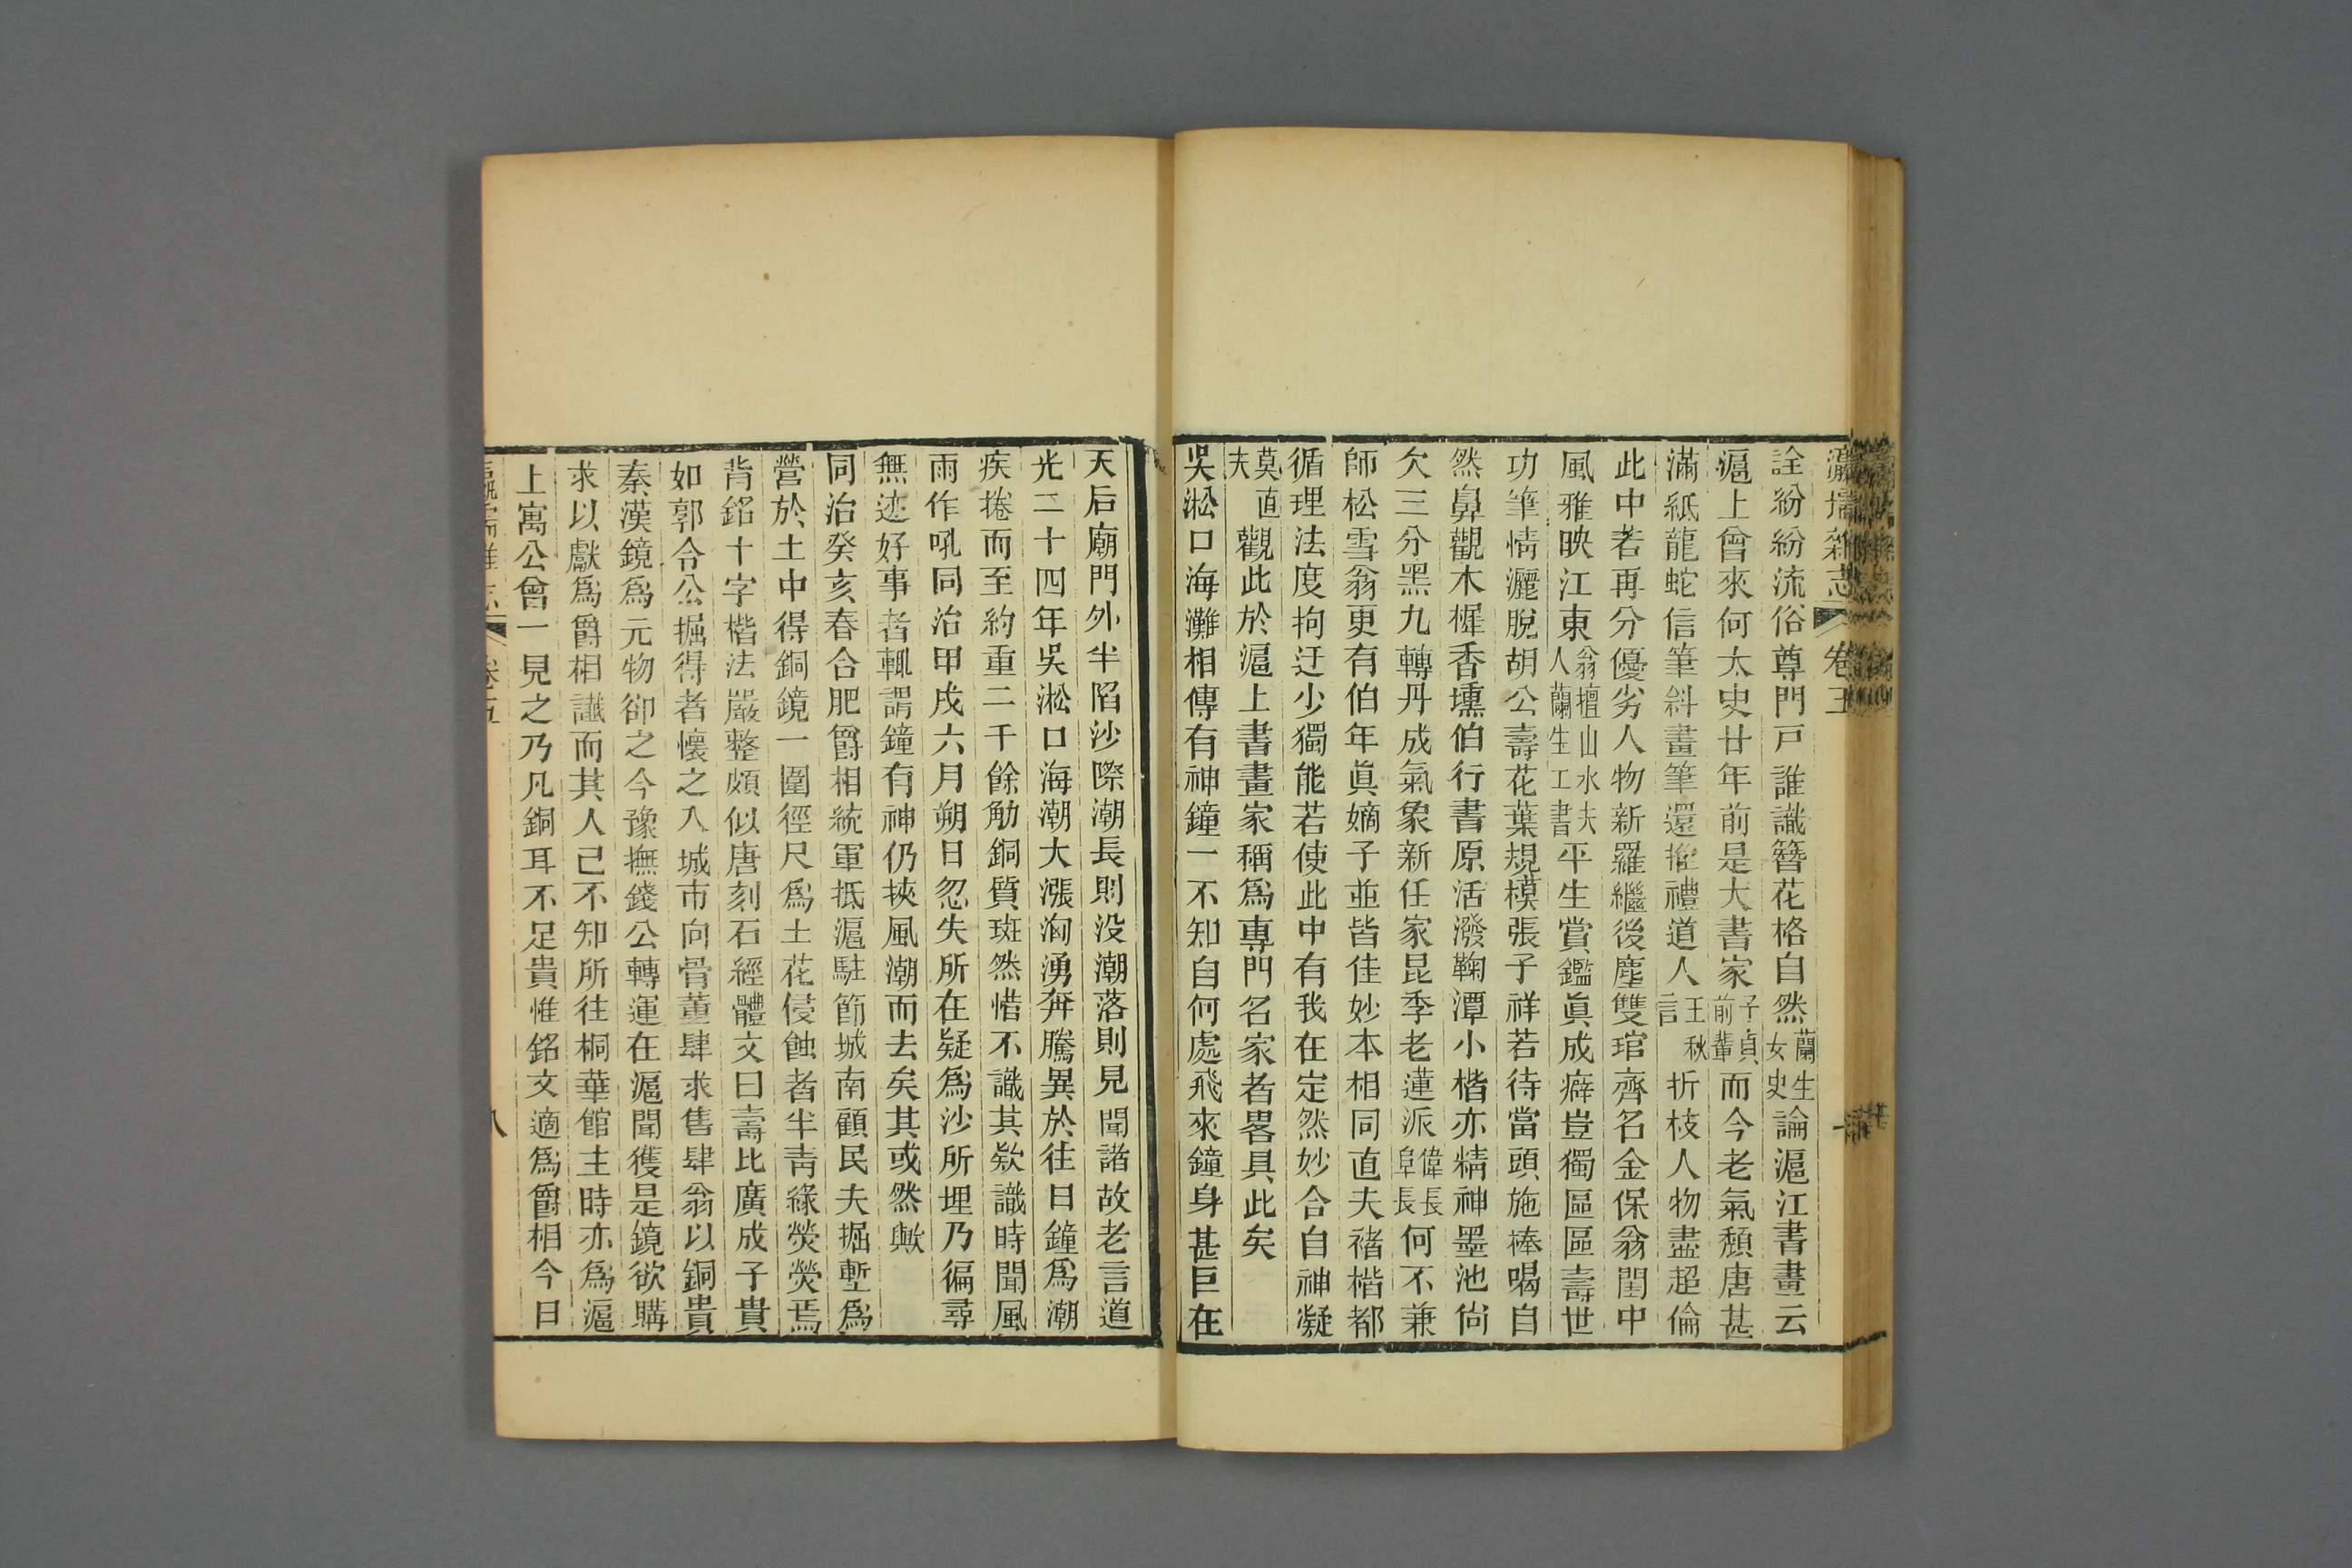 瀛壖雜志 卷五
詮紛紛流俗尊門戸誰識簪花格自然蘭生女史論滬江書畫云
滬上曾來何太史廿年前是大書家子貞前輩而今老氣頹唐甚
滿紙龍蛇信筆斜畫筆還推禮道人王秋言折枝人物盡超倫
此中若再分優劣人物新羅繼後塵雙琯齊名金保翁閨中
風雅映江東翁擅山水夫人蘭生工書平生賞鑑眞成癖豈獨區區壽世
功筆情灑脫胡公壽花葉規模張子祥若待當頭施棒喝自
然鼻觀木樨香壎伯行書原活潑鞠潭小楷亦精神墨池尙
欠三分黑九轉丹成氣象新任家昆季老蓮派偉長阜長何不兼
師松雪翁更有伯年眞嫡子並皆佳妙本相同直夫禇楷都
循理法度拘迂少獨能若使此中有我在定然妙合自神凝
莫直夫觀此於滬上書畫家稱爲專門名家者畧具此矣
吳淞口海灘相傳有神鐘一不知自何處飛來鐘身甚巨在
天后廟門外半陷沙際潮長則没潮落則見聞諸故老言道
光二十四年吳淞口海潮大漲洶湧奔騰異於往日鐘爲潮
疾捲而至約重二千餘觔銅質斑然惜不識其欵識時聞風
雨作吼同治甲戌六月朔日忽失所在疑爲沙所埋乃徧尋
無迹好事者輒謂鐘有神仍挾風潮而去矣其或然歟
同治癸亥春合肥爵相統軍抵滬駐節城南顧民夫掘塹爲
營於土中得銅鏡一圍徑尺爲土花侵蝕者半靑綠熒熒焉
背銘十字楷法嚴整頗似唐刻石經體文曰壽比廣成子貴
如郭令公掘得者懷之入城市向骨董肆求售肆翁以銅貴
秦漢鏡爲元物卻之今豫撫錢公轉運在滬聞獲是鏡欲購
求以獻爲爵相讖而其人已不知所往桐華館主時亦爲滬
上寓公曾一見之乃凡銅耳不足貴惟銘文適爲爵相今日
瀛壖雜志 卷五 八